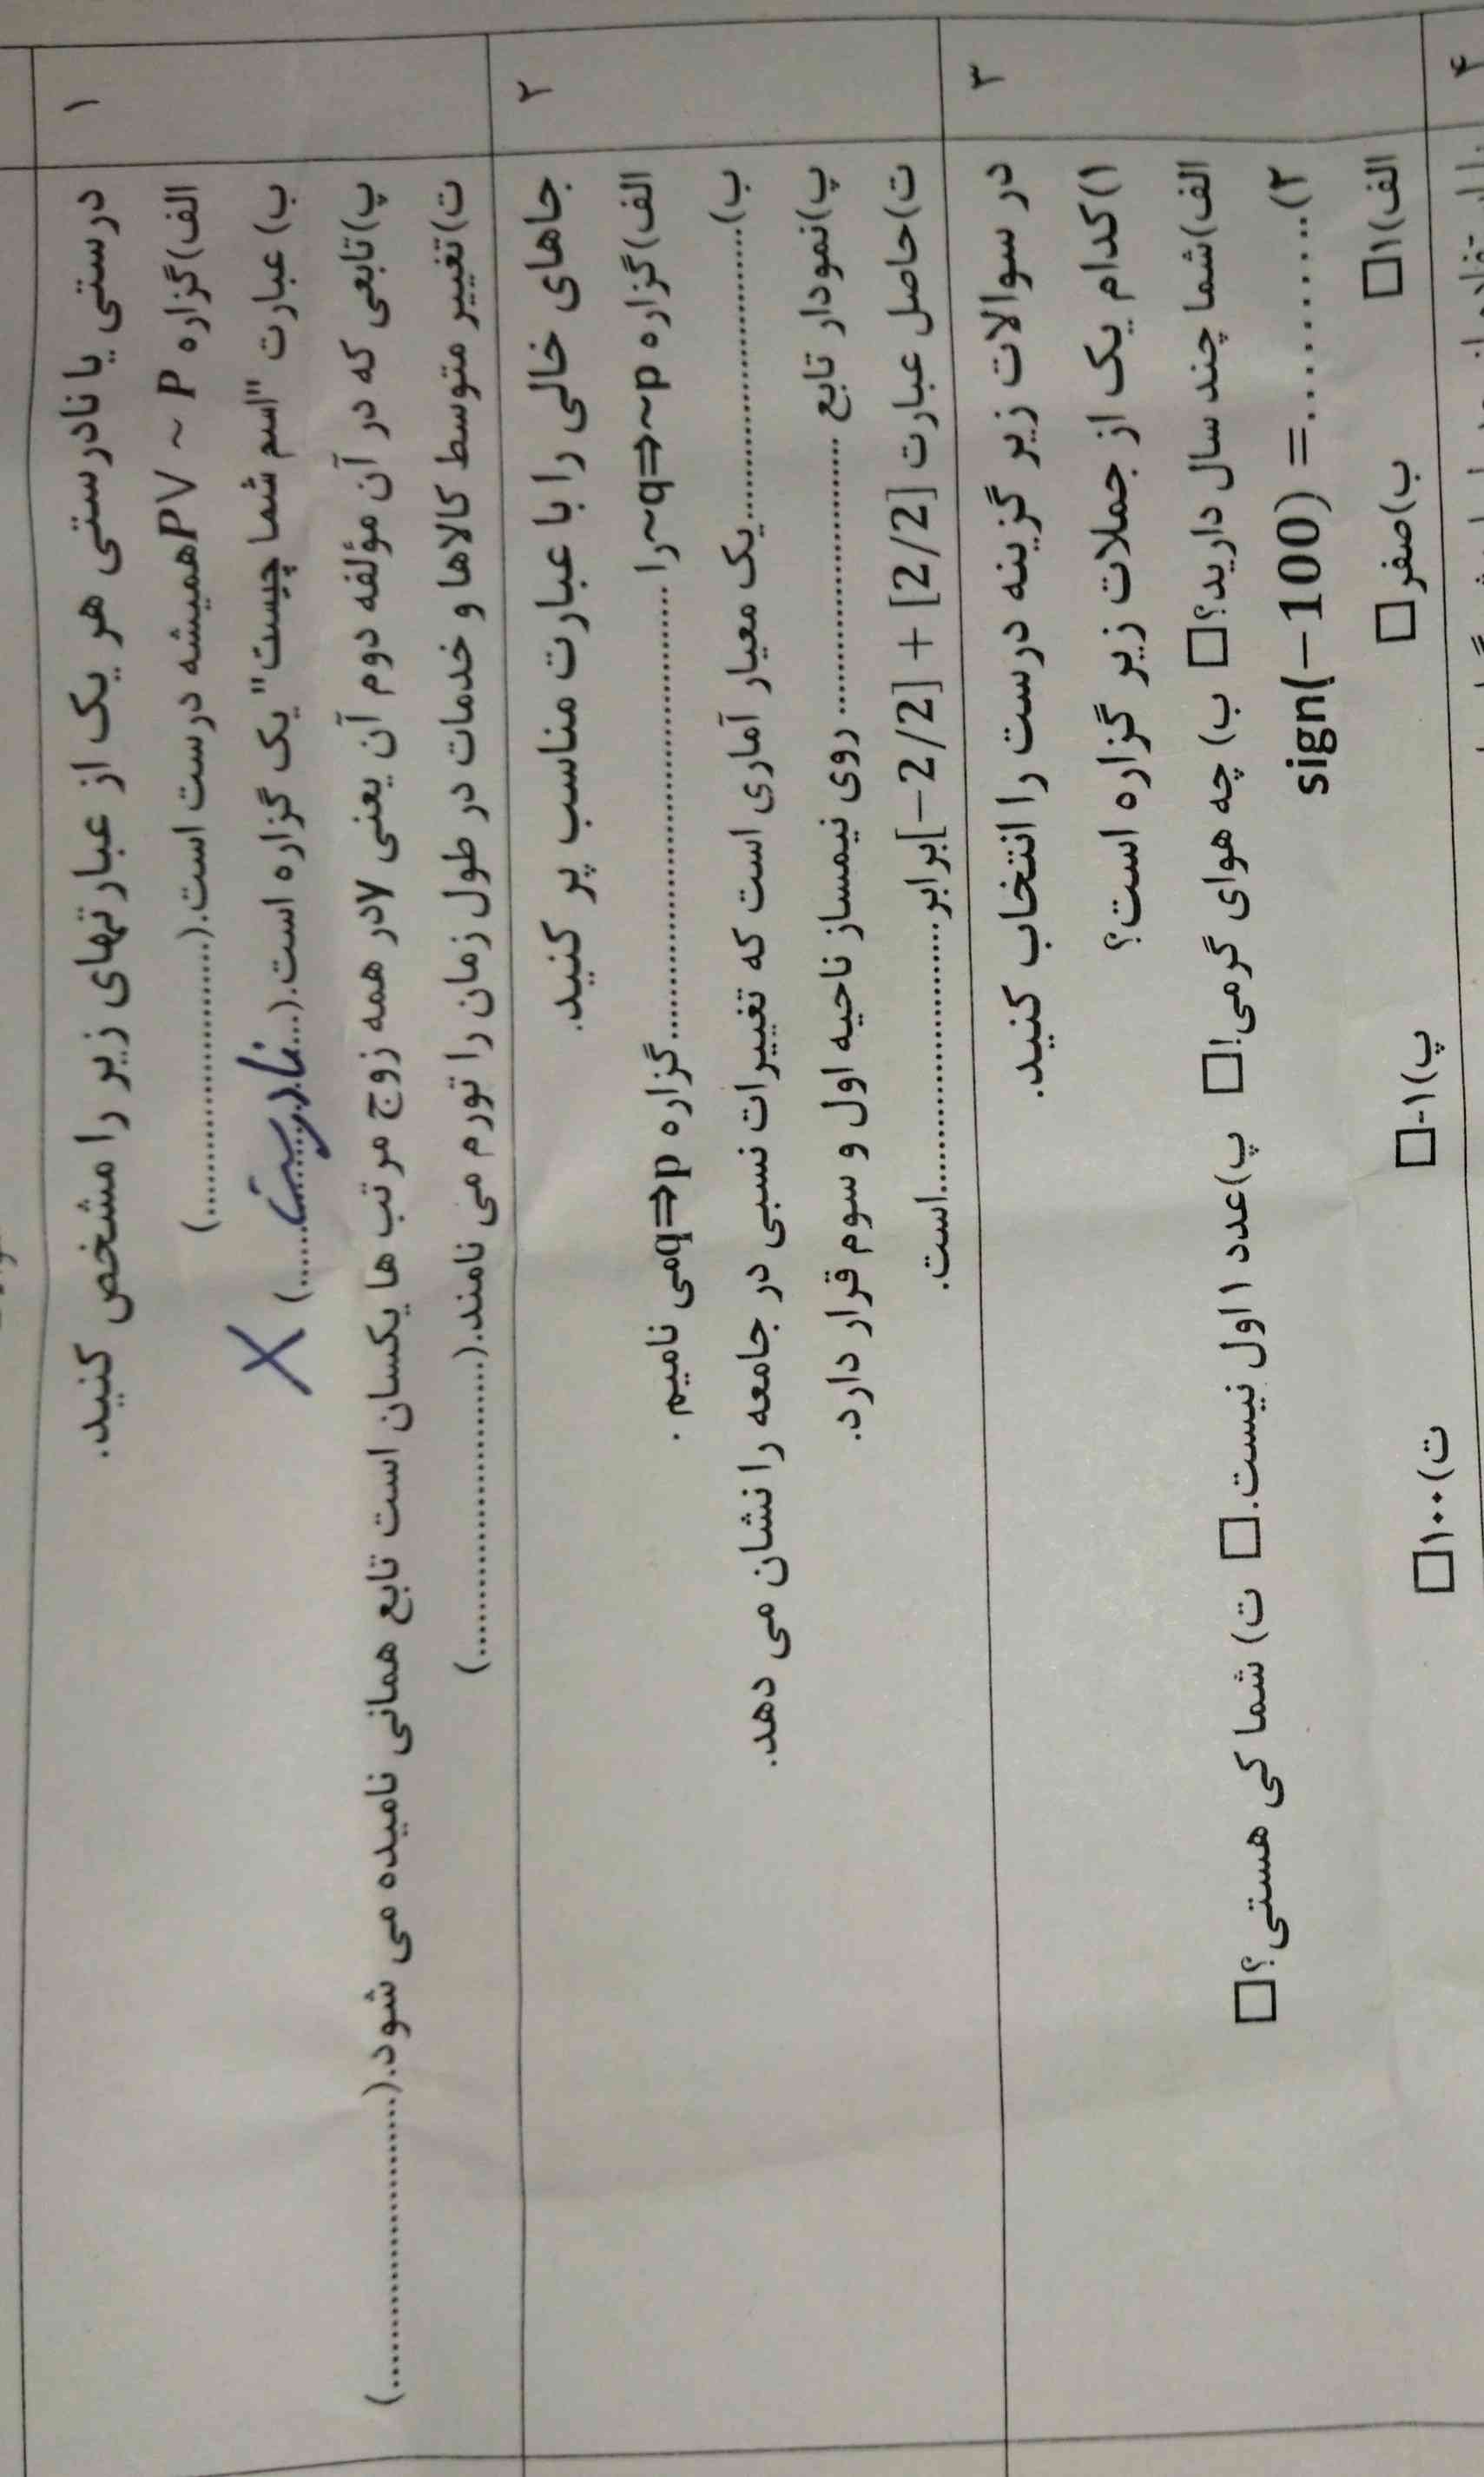 ۱
درستی یا نادرستی هر یک از عبارتهای زیر را مشخص کنید.
الف)گزاره P ∨ ~ P همیشه درست است.(....................)
ب) عبارت "اسم شما چیست" یک گزاره است.(...نادرست......) X
پ)تابعی که در آن مؤلفه دوم آن یعنی y در همه زوج مرتب ها یکسان است تابع همانی نامیده می شود.(....................)
ت)تغییر متوسط کالاها و خدمات در طول زمان را تورم می نامند.(....................)
۲
جاهای خالی را با عبارت مناسب پر کنید.
الف)گزاره ~q⇒~p را ..............................گزاره p⇒q می نامیم .
ب)..............................یک معیار آماری است که تغییرات نسبی در جامعه را نشان می دهد.
پ)نمودار تابع .............................. روی نیمساز ناحیه اول و سوم قرار دارد.
ت)حاصل عبارت [2/2] + [−2/2] برابر..............................است.
۳
در سوالات زیر گزینه درست را انتخاب کنید.
۱)کدام یک از جملات زیر گزاره است؟
الف)شما چند سال دارید؟□ ب) چه هوای گرمی!□ پ)عدد ۱ اول نیست.□ ت) شما کی هستی؟□
۲)..........= sign(−100)
الف)۱□ ب)صفر□ پ)۱-□ ت)۱۰۰□
۴